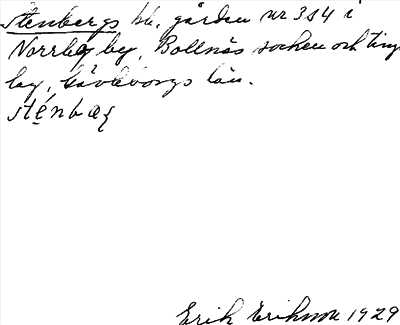 Stenbergs bb. gården nr 3 o 4 i
Norrby by, Bollnäs socken och ting
lag, Gävleborgs län.
Erik Eriksson 1929